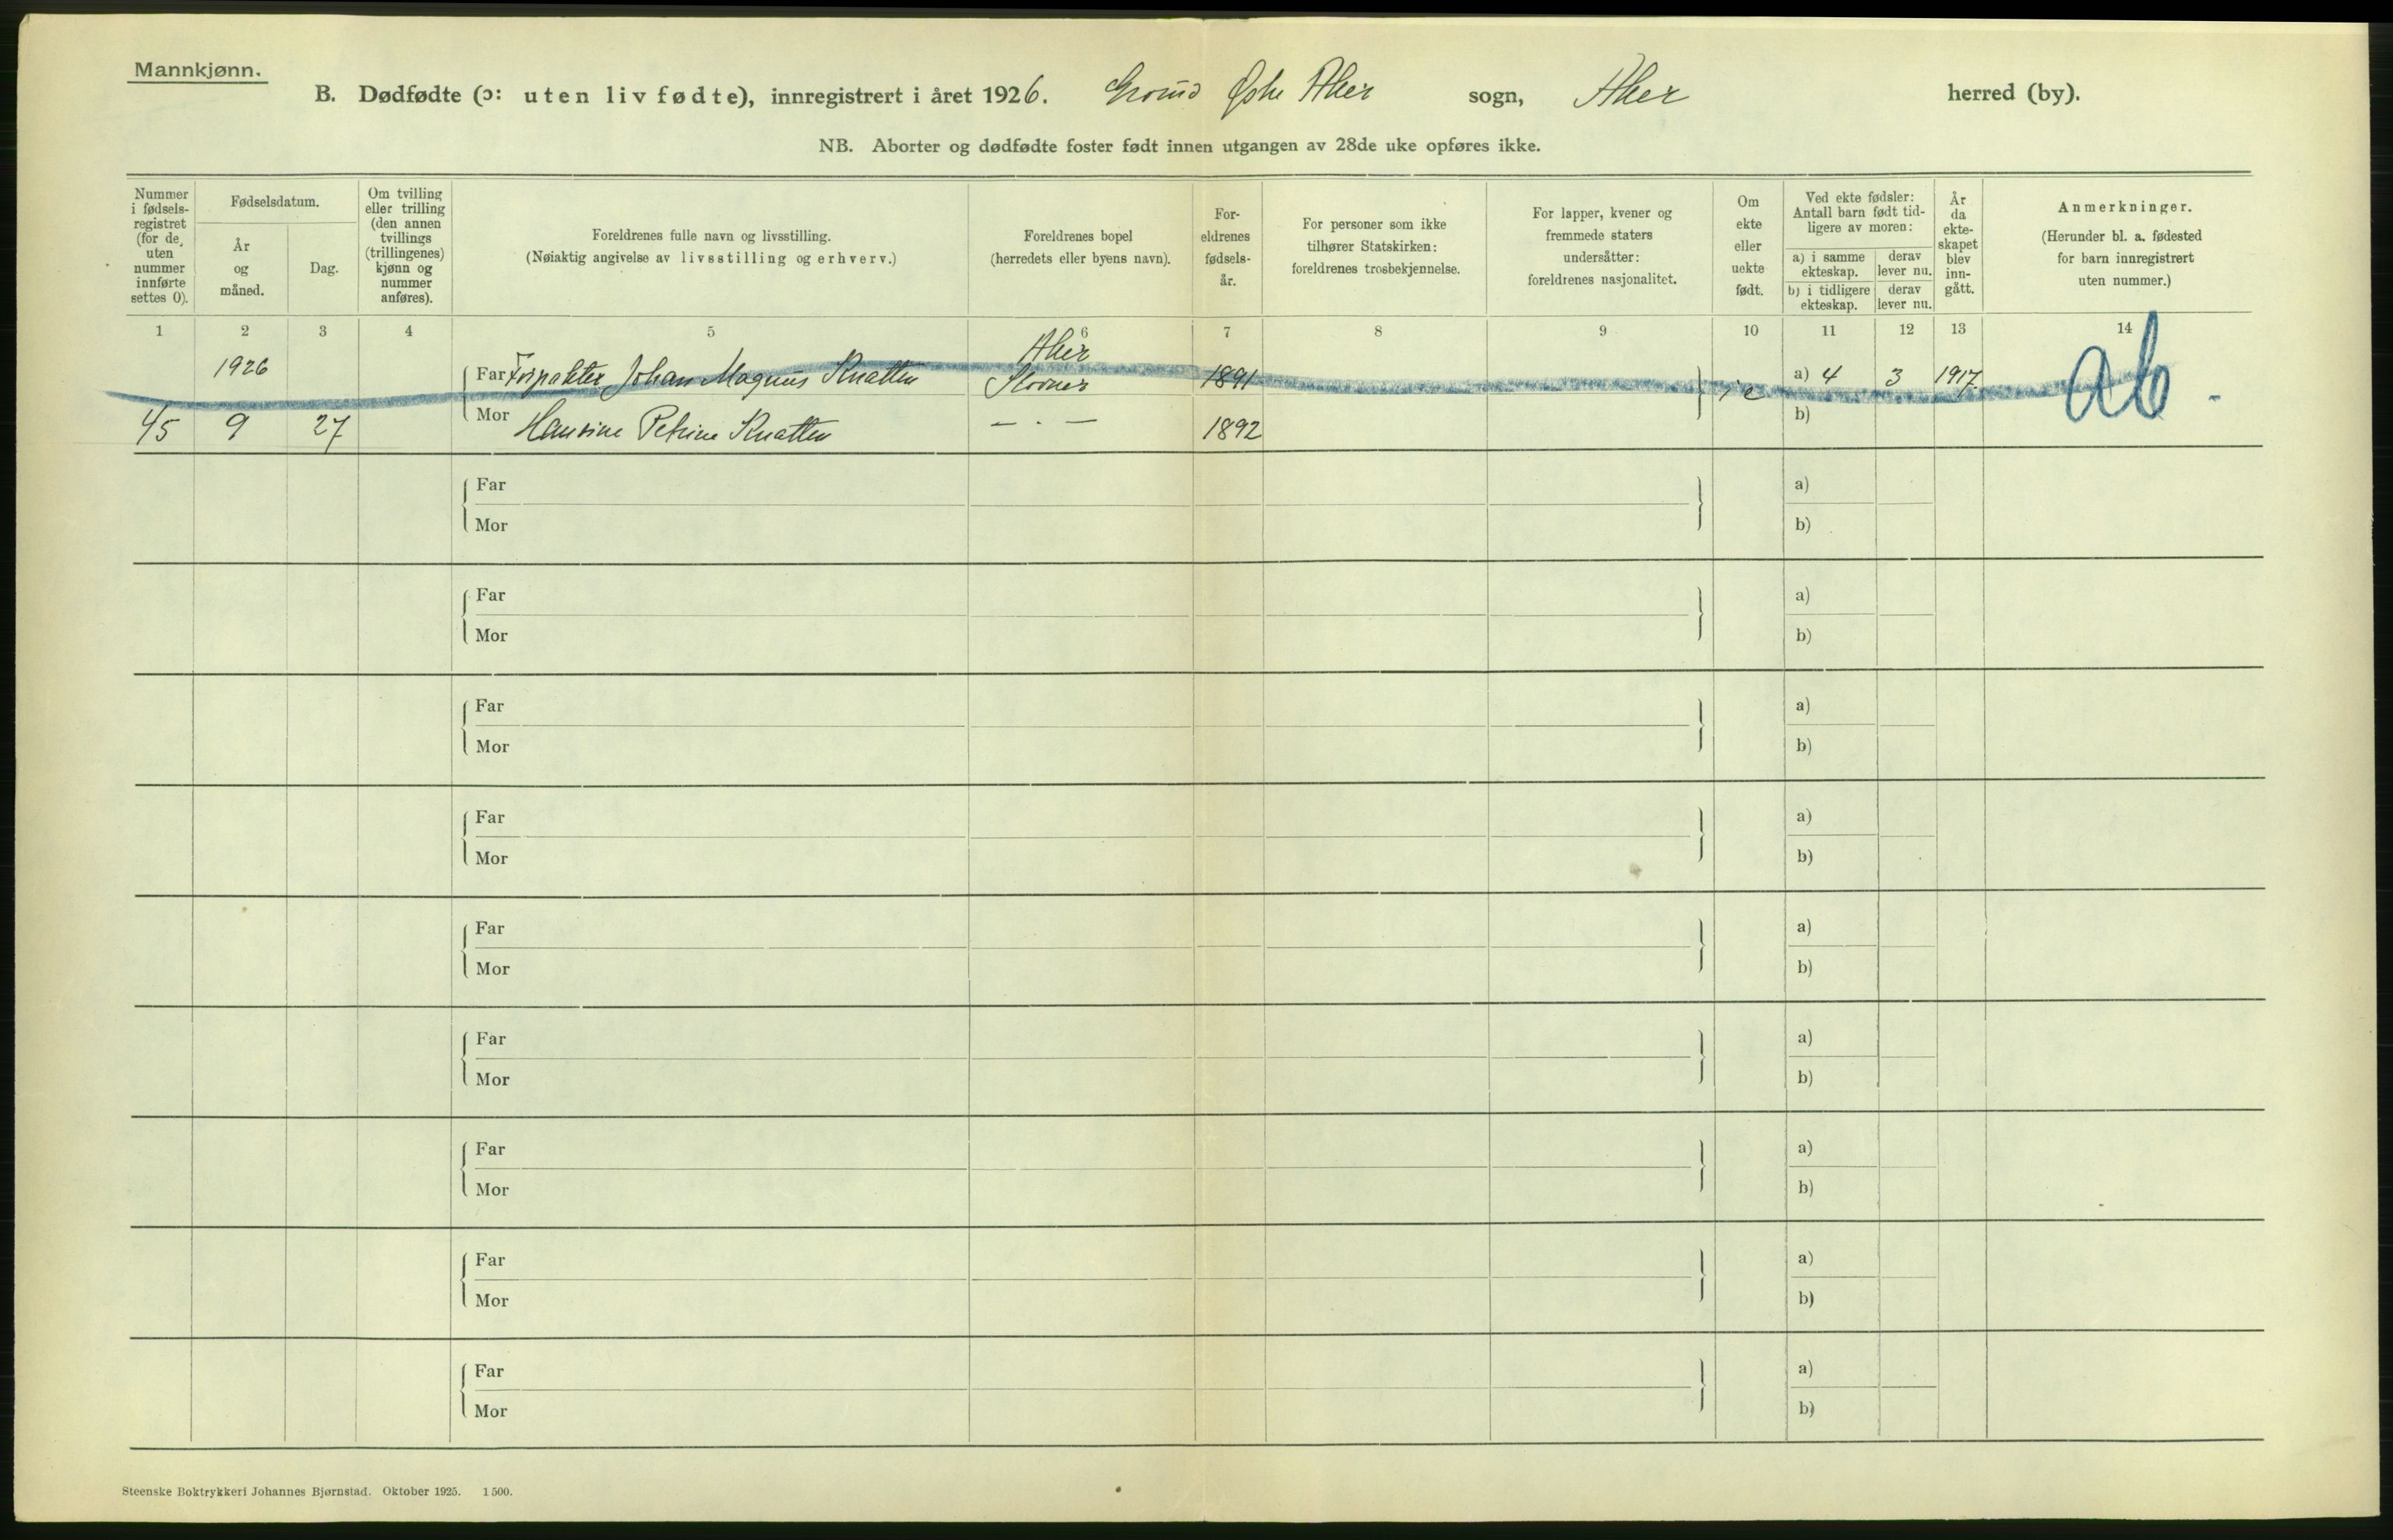 Mannkjønn.
B. Dødfødte (ɔ: uten liv fødte), innregistrert i året 1926. Grorud Østre Aker sogn, Aker herred (by).
NB. Aborter og dødfødte foster født innen utgangen av 28de uke opføres ikke.
Nummer i fødsels-registret (for de uten nummer innførte settes 0).
Fødselsdatum.
År og måned.
Dag.
Om tvilling eller trilling (den annen tvillings (trillingenes) kjønn og nummer anføres).
Foreldrenes fulle navn og livsstilling.
(Nøiaktig angivelse av livsstilling og erhverv.)
Foreldrenes bopel
(herredets eller byens navn).
For-eldrenes fødsels-år.
For personer som ikke tilhører Statskirken: foreldrenes trosbekjennelse.
For lapper, kvener og fremmede staters undersåtter: foreldrenes nasjonalitet.
Om ekte eller uekte født.
Ved ekte fødsler: Antall barn født tid-ligere av moren:
a) i samme ekteskap.
derav lever nu.
b) i tidligere ekteskap.
derav lever nu.
År da ekte-skapet blev inn-gått.
Anmerkninger.
(Herunder bl. a. fødested for barn innregistrert uten nummer.)
1 2 3 4 5 6 7 8 9 10 11 12 13 14
1926 Far Forpakter Johan Magnus Knatten Aker Stovner 1891 e a) 4 3 1917 ab.
45 9 27 Mor Hansine Petrine Knatten — . — 1892 b)
Far a)
Mor b)
Far a)
Mor b)
Far a)
Mor b)
Far a)
Mor b)
Far a)
Mor b)
Far a)
Mor b)
Far a)
Mor b)
Far a)
Mor b)
Far a)
Mor b)
Steenske Boktrykkeri Johannes Bjørnstad. Oktober 1925. 1500.